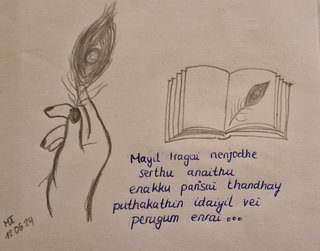 Mayil Iragai nenjodhe
serthu anaithu
enakku parisai thandhay
puthakathin idaiyil vei
perugum enrai ...
MI
12.06.24